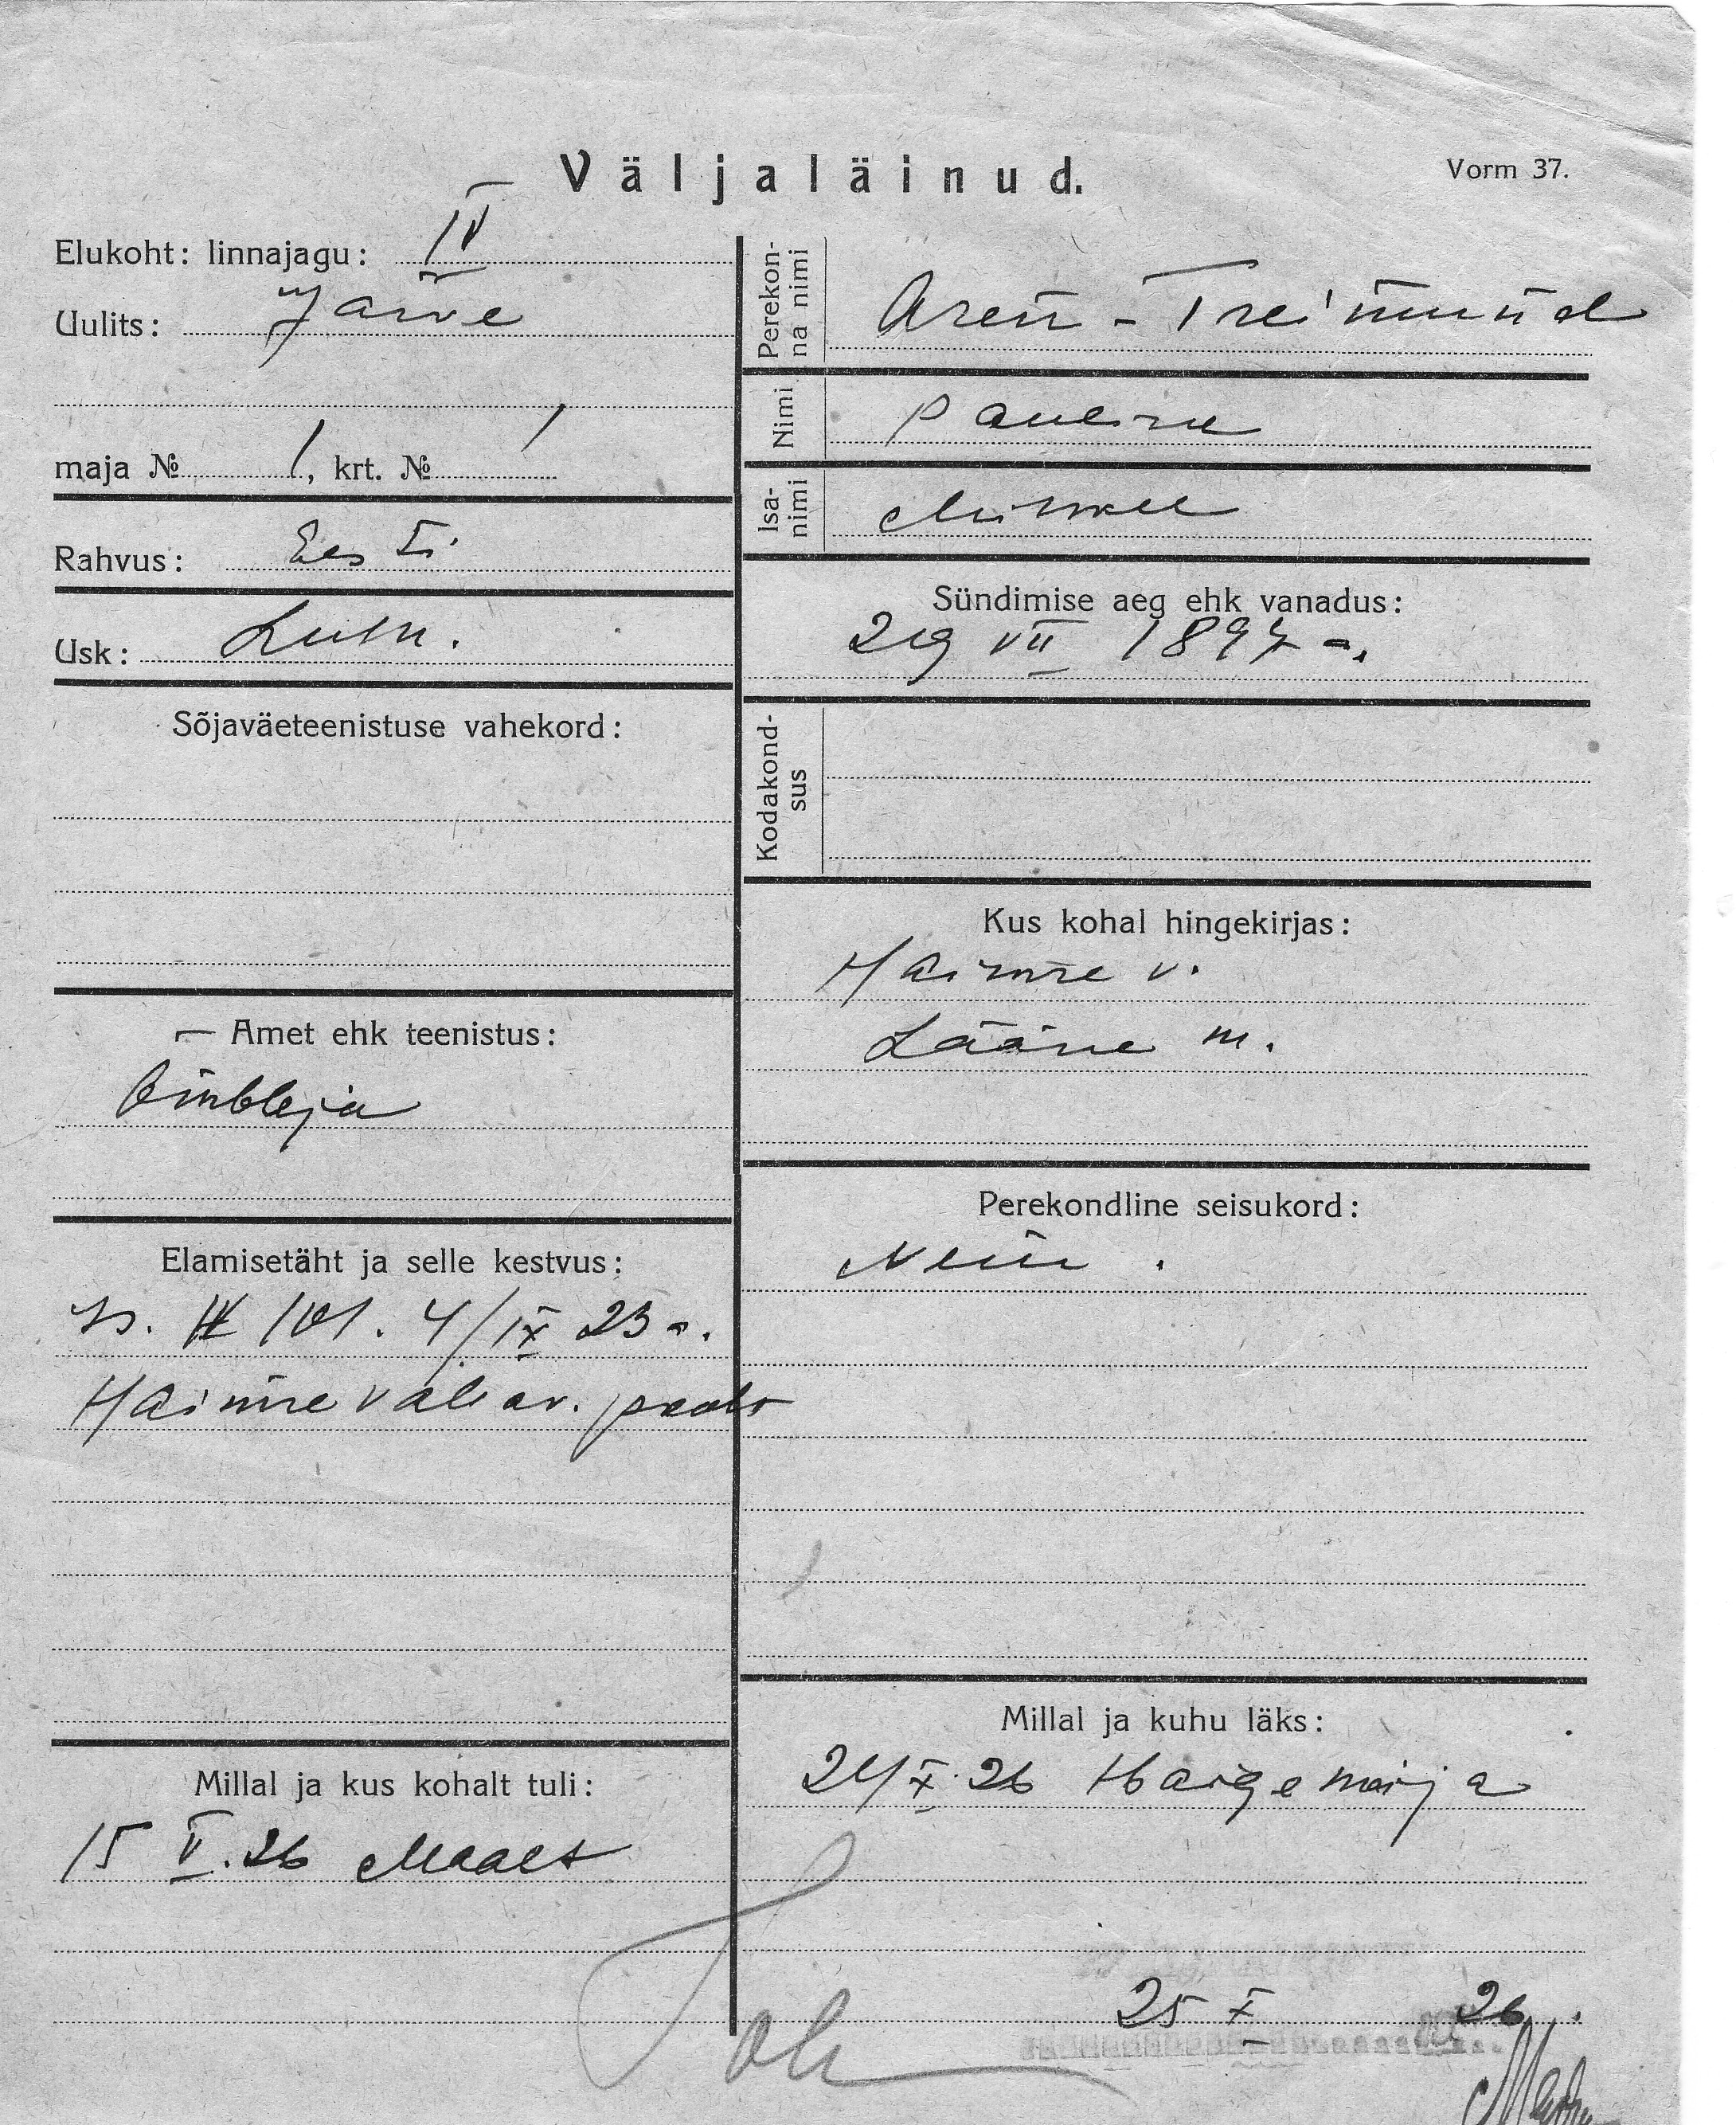 Väljaläinud.
Vorm 37.
Elukoht: linnajagu: IV
Uulits: Järve
maja № 1, krt. № 1
Rahvus: Eesti
Usk: Luth.
Sõjaväeteenistuse vahekord:
Amet ehk teenistus:
Õmbleja
Elamisetäht ja selle kestvus:
IV 101. 4/IX 23 a.
Haimre valiav. poolt
Millal ja kus kohalt tuli:
15 V. 26 Maalt
Perekonna nimi
Aren - Treimund
Nimi Pauline
Isanimi Mihkel
Sündimise aeg ehk vanadus:
29 VII 1897 a.
Kodakondsus
Kus kohal hingekirjas:
Haimre v.
Lääne m.
Perekondline seisukord:
Neiu.
Millal ja kuhu läks:
24/X. 26 Haigemaja
25 X 26.